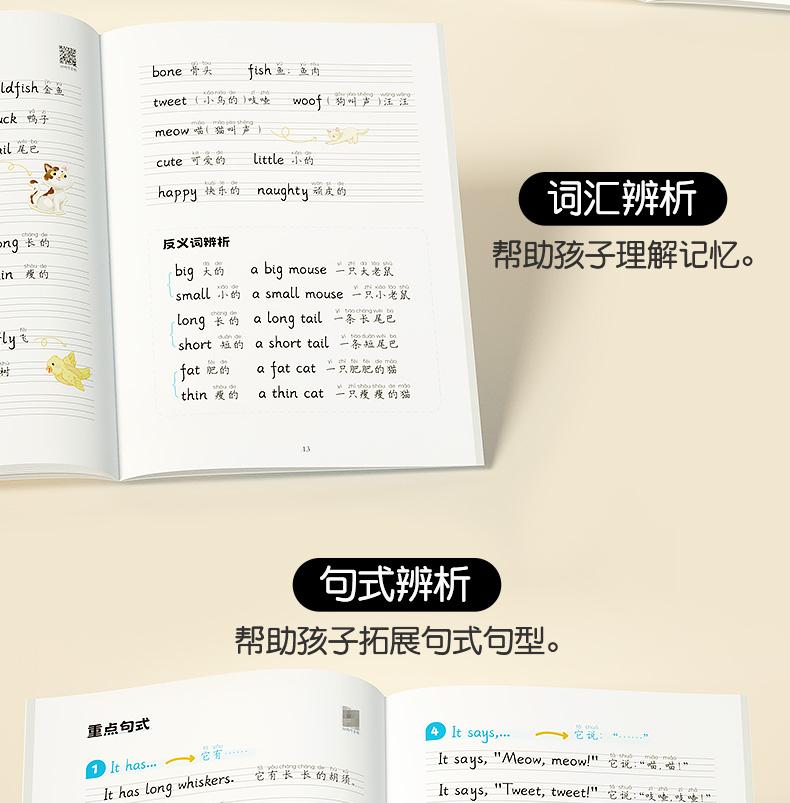 ldfish 金鱼
uck 鸭子
ail 尾巴
ong 长的
in 瘦的
fly 飞
树
bone 骨头 fish 鱼；鱼肉
tweet （小鸟的）吱喳 woof（狗叫声）汪汪
meow 喵（猫叫声）
cute 可爱的 little 小的
happy 快乐的 naughty 顽皮的
反义词辨析
big 大的 a big mouse 一只大老鼠
small 小的 a small mouse 一只小老鼠
long 长的 a long tail 一条长尾巴
short 短的 a short tail 一条短尾巴
fat 肥的 a fat cat 一只肥肥的猫
thin 瘦的 a thin cat 一只瘦瘦的猫
13
词汇辨析
帮助孩子理解记忆。
句式辨析
帮助孩子拓展句式句型。
重点句式
1 It has... 它有……
It has long whiskers. 它有长长的胡须。
4 It says,... 它说：“……”
It says, "Meow, meow!" 它说：“喵，喵！”
It says, "Tweet, tweet!" 它说：“吱喳，吱喳！”